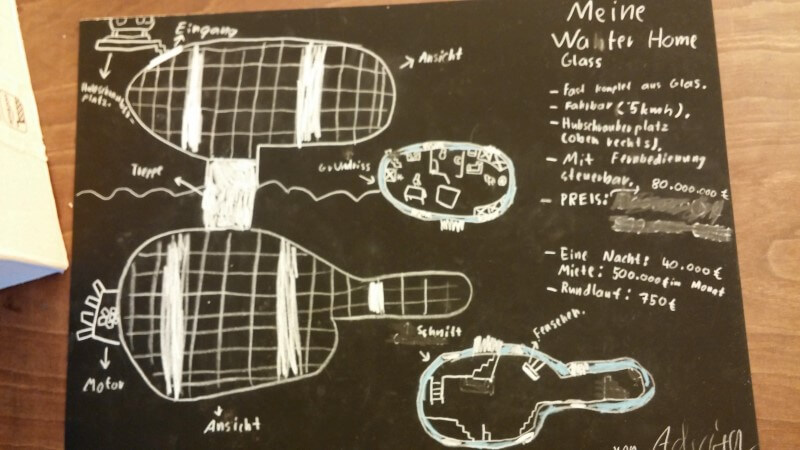 Meine
Water Home
Glass
- Fast komplet aus Glas.
- Fahrbar (5kmh).
- Hubschrauberplatz
(oben rechts).
- Mit Fernbedienung
steuerbar.
- PREIS: 80.000.000€
- Eine Nacht: 40.000€
Miete: 500.000€ im Monat
- Rundlauf: 750€
Eingang
Ansicht
Hubschrauber-
platz.
Treppe
Grundriss
Motor
Ansicht
Schnitt
Fernseher.
von